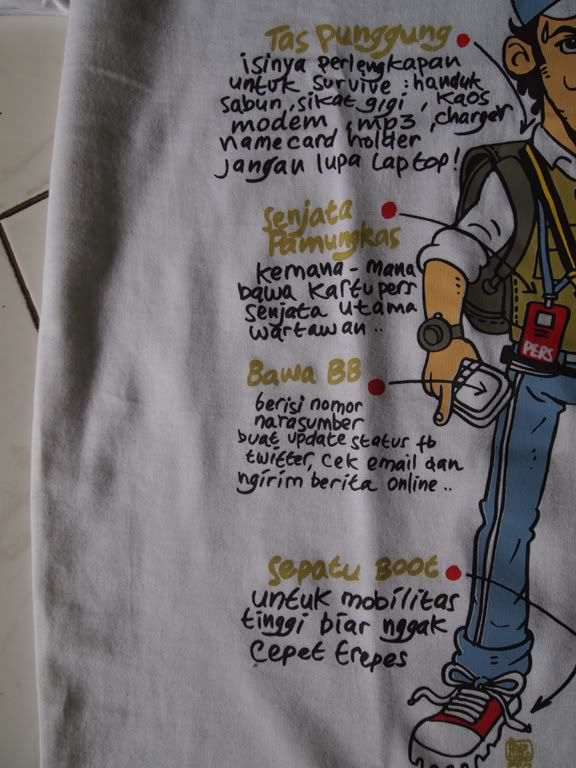 Tas Punggung
isinya perlengkapan
untuk survive : handuk
sabun, sikat gigi, Kaos
modem, mp3, charger
namecard holder
jangan lupa Laptop!
Senjata
Pamungkas
kemana-mana
bawa Kartu pers
senjata utama
wartawan..
PERS
Bawa BB
berisi nomor
narasumber
buat update status fb
twitter, cek email dan
ngirim berita online..
Sepatu Boot
untuk mobilitas
tinggi biar nggak
Cepet Trepes